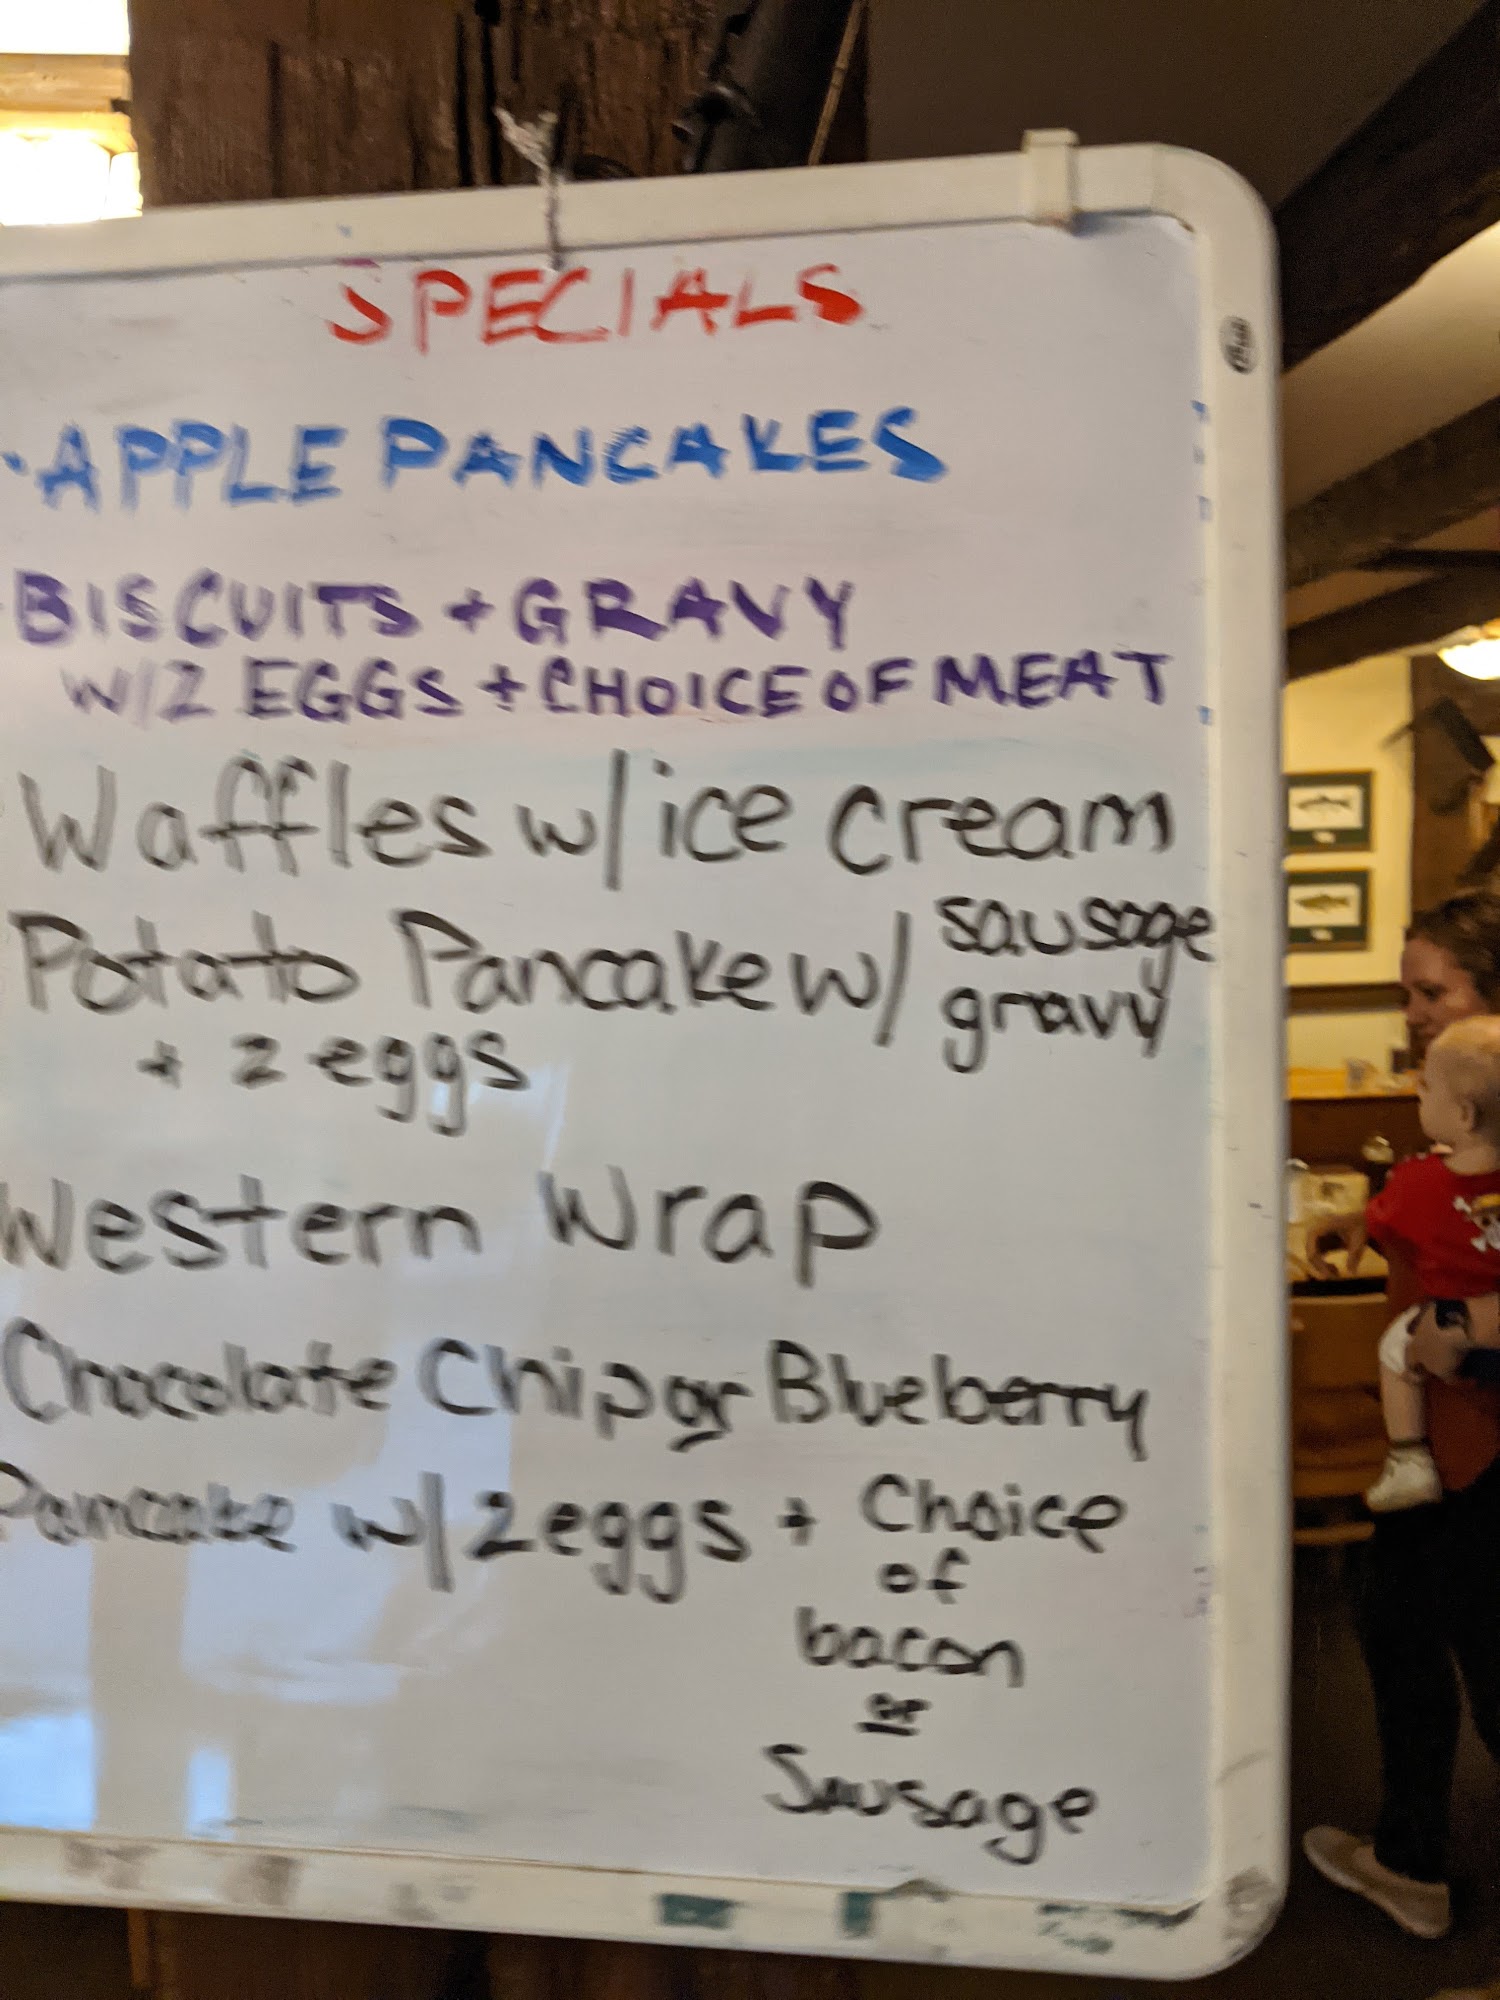 SPECIALS
· APPLE PANCAKES
BISCUITS + GRAVY
W/2 EGGS + CHOICE OF MEAT
Waffles w/ ice cream
Potato Pancake w/ sausage gravy
+ 2 eggs
Western Wrap
Chocolate Chip or Blueberry
Pancake w/ 2 eggs + Choice
of
bacon
or
Sausage